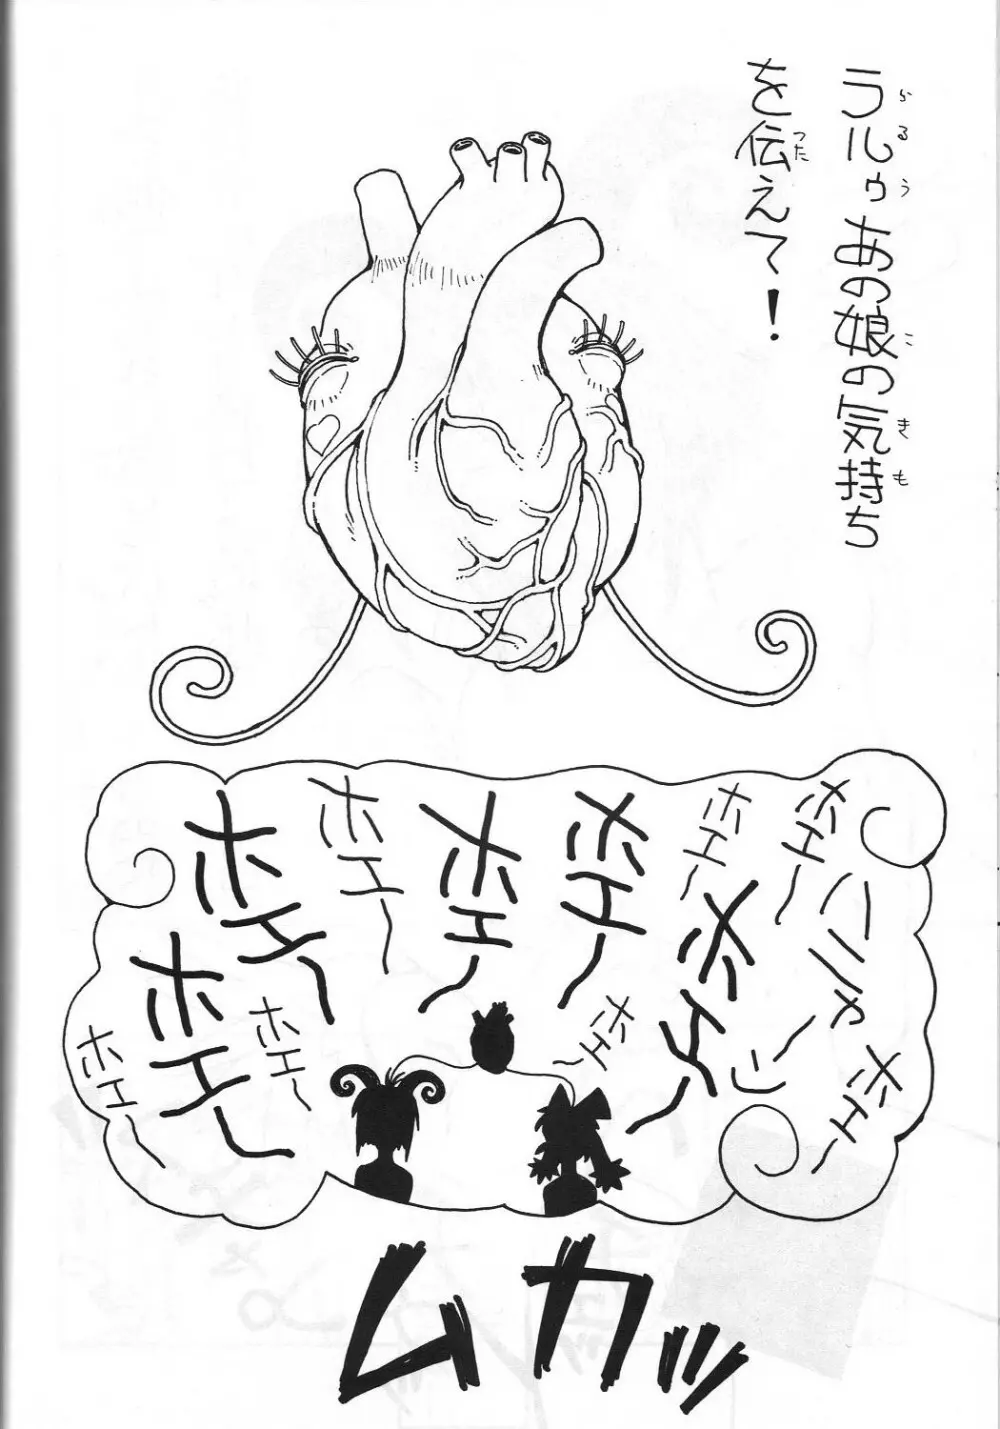 ラルゥあの娘の気持ち
を伝えて！
ホエ～
ハニャ～ン
ホエ～
ホエ～
ホエ～
ホエ～
ホエ～
ホエ～
ホエ～
ホエ～
ホエ～
ホエ～
ホエ～
ムカッ